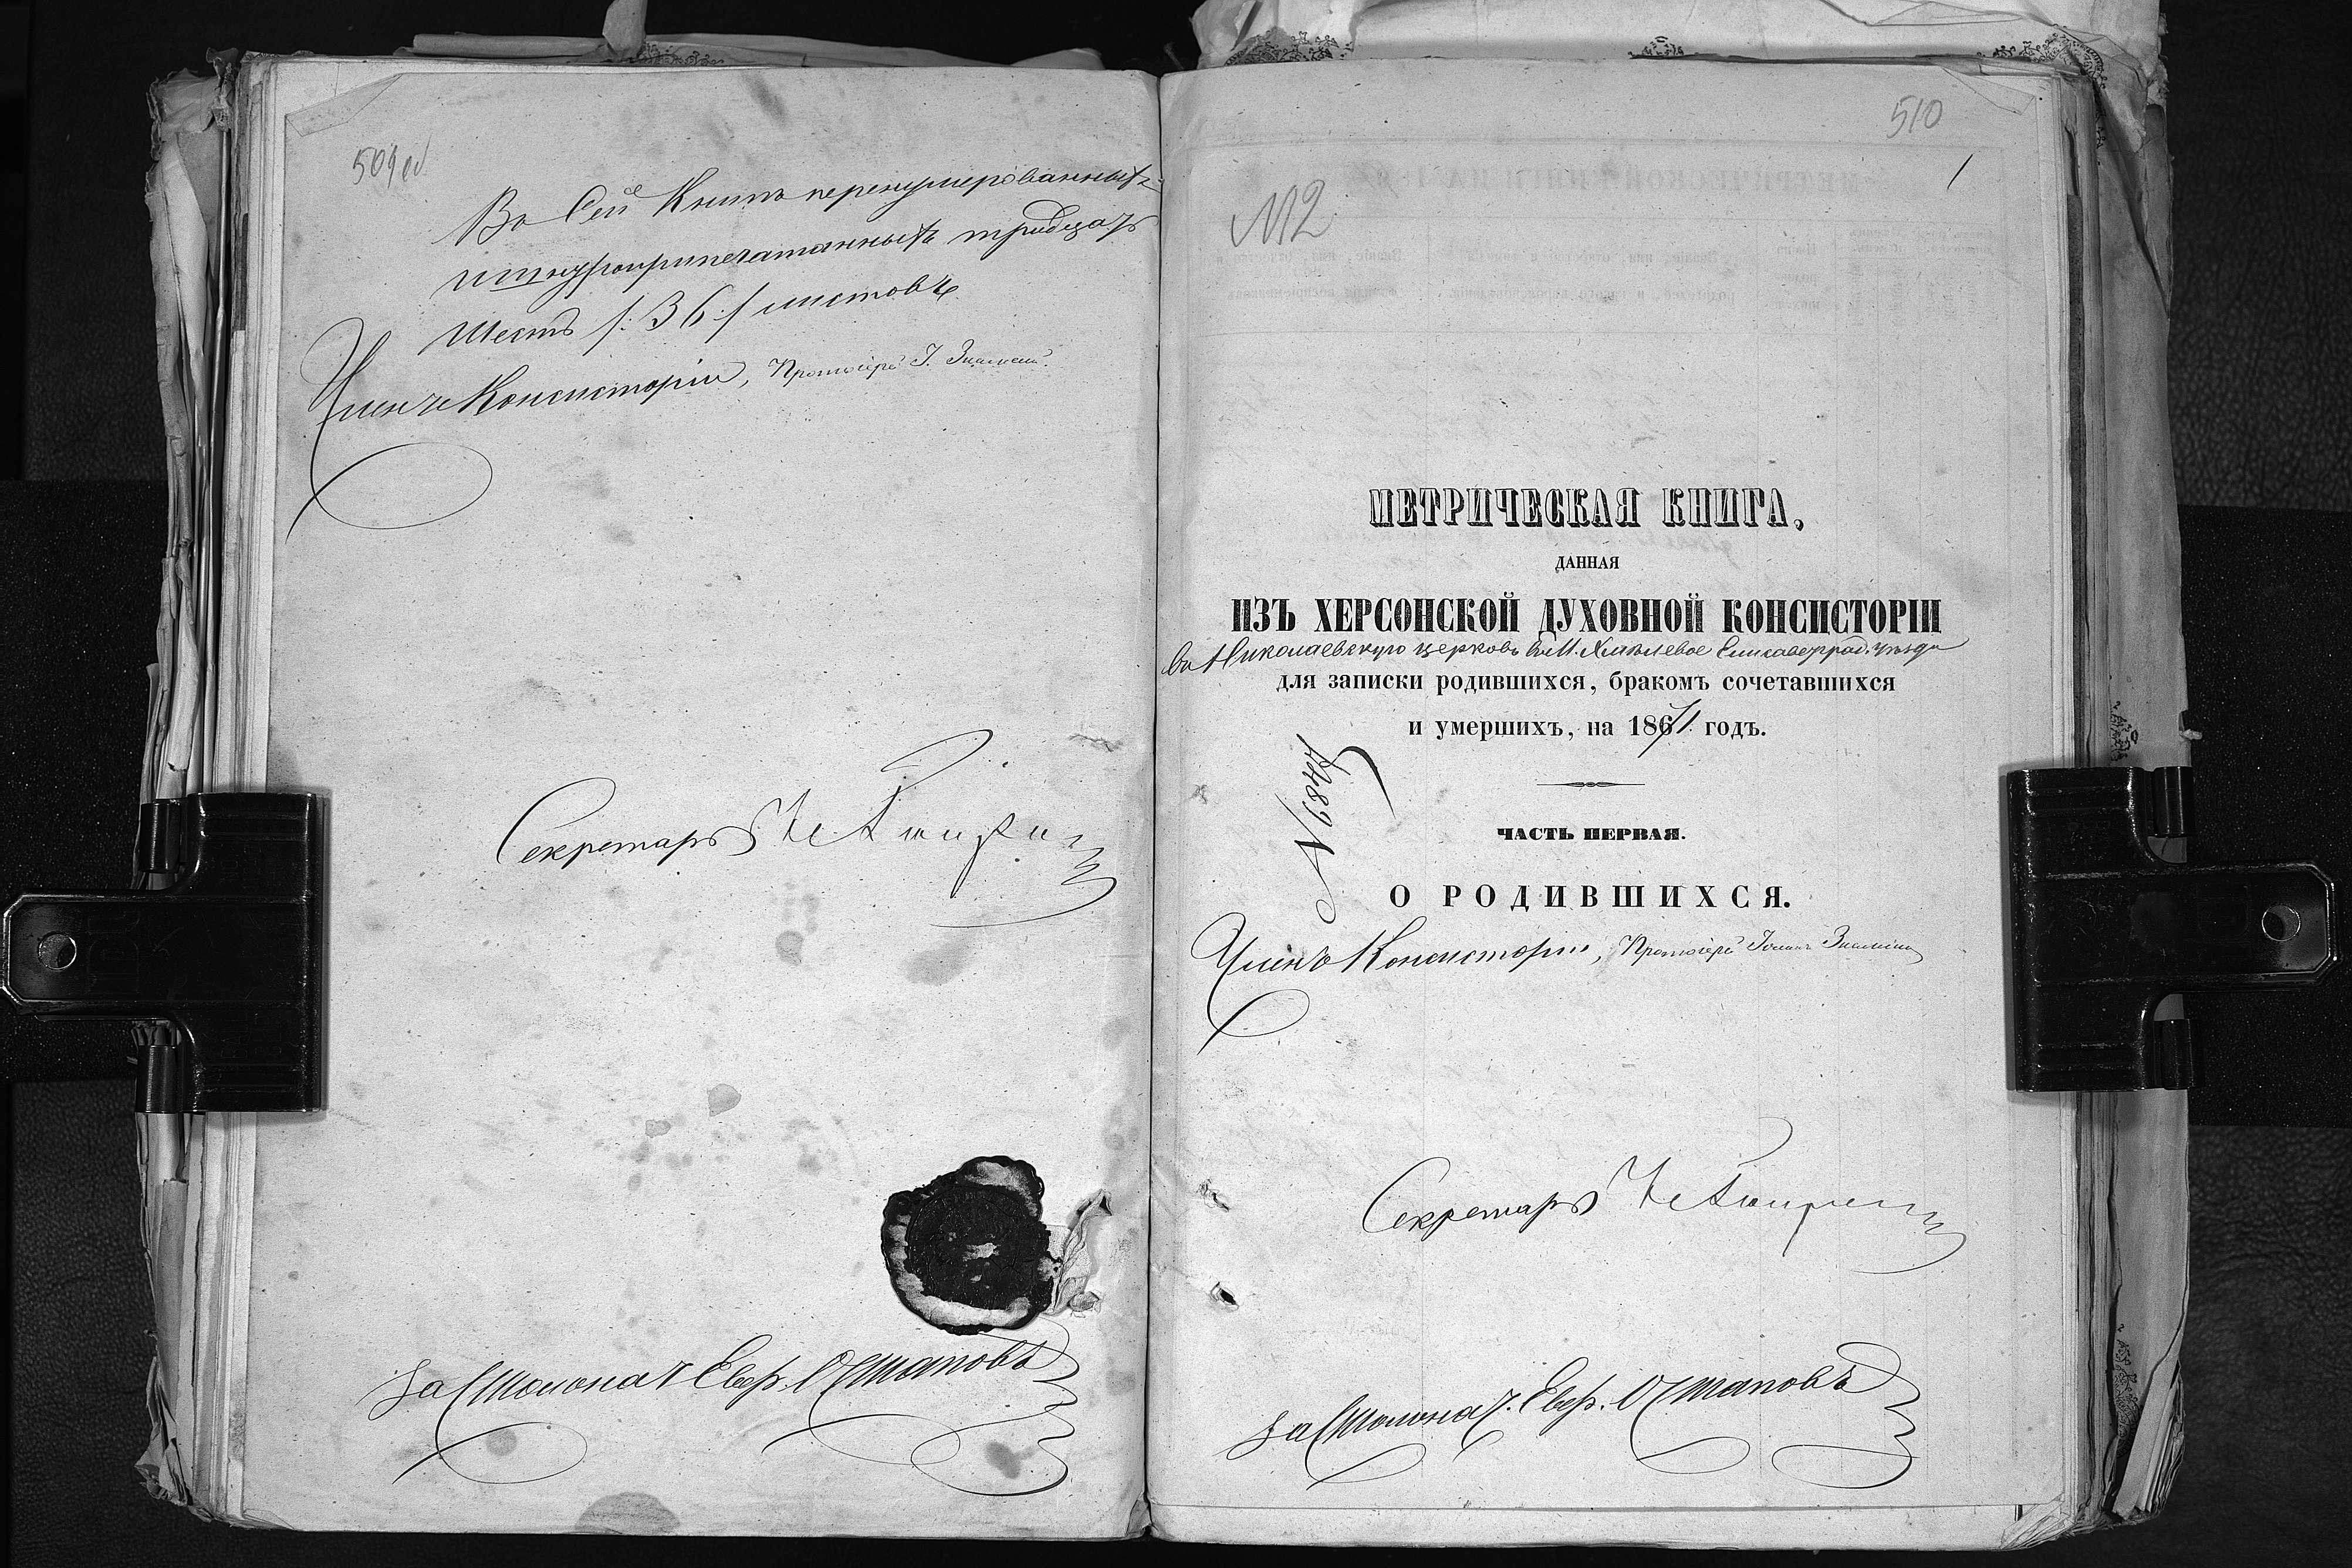 509 об
Въ сей Книгѣ перенумерованныхъ
ишнуроприпечатанныхъ тридцать
шесть /:36:/ листовъ
Членъ Консисторіи, Протоіерей І. Знаменскій
Секретарь
За Столонач Евф. Остаповъ
510
1
№2
МЕТРИЧЕСКАЯ КНИГА,
ДАННАЯ
ИЗЪ ХЕРСОНСКОЙ ДУХОВНОЙ КОНСИСТОРІИ
въ Николаевскую церковь въ М. Хмѣлевое Елисаветград. уѣзда
для записки родившихся, бракомъ сочетавшихся
и умершихъ, на 1871 годъ.
ЧАСТЬ ПЕРВАЯ.
О РОДИВШИХСЯ.
Членъ Консисторіи, Протоіерей Іоаннъ Знаменскій
Секретарь
За Столонач. Евф. Остаповъ